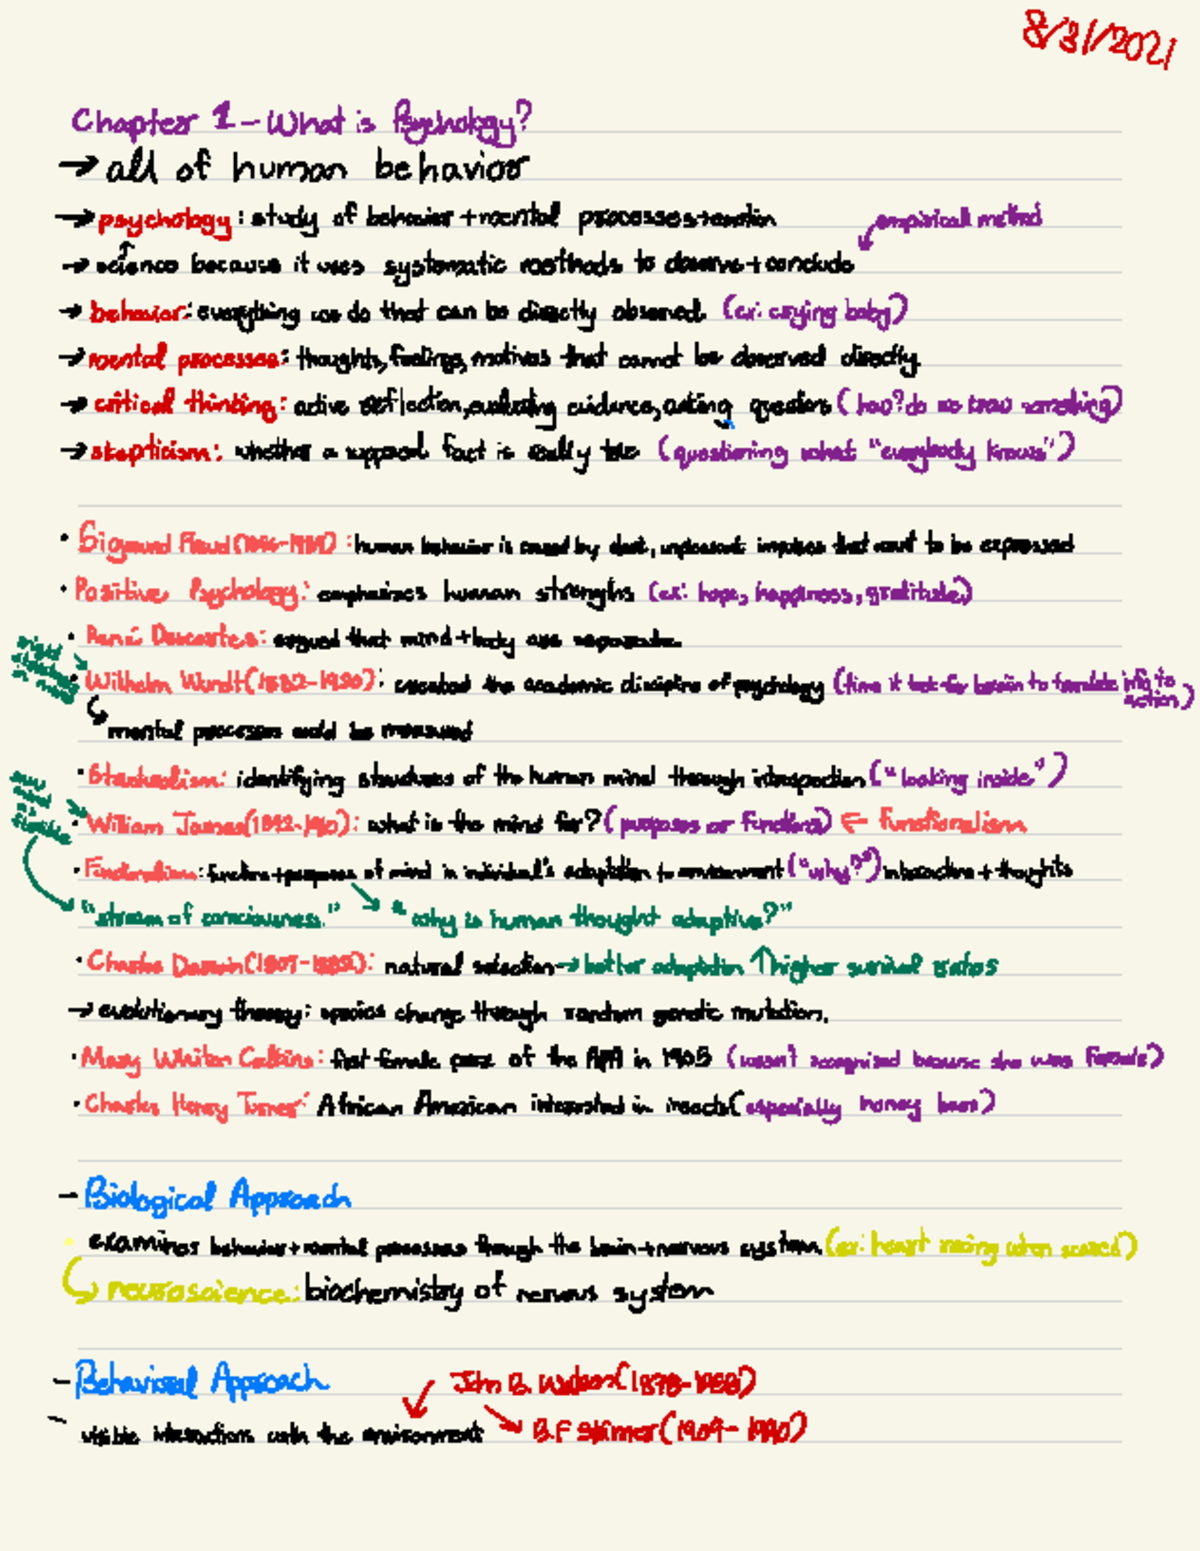 8/31/2021
Chapter 1 - What is Psychology?
→ all of human behavior
→ psychology: study of behavior + mental processes + emotion
empirical method
→ science because it uses systematic methods to observe + conclude
→ behavior: everything we do that can be directly observed. (ex: crying baby)
→ mental processes: thoughts, feelings, motives that cannot be observed directly
→ critical thinking: active reflection, evaluating evidence, asking questions (how? do we know something)
→ skepticism: whether a supposed fact is really true (questioning what "everybody knows")
• Sigmund Freud : human behavior is caused by dark, unpleasant impulses that want to be expressed
• Positive Psychology: emphasizes human strengths (ex: hope, happiness, gratitude)
• René Descartes: argued that mind + body are separate.
• Wilhelm Wundt (1832-1920): created the academic discipline of psychology (time it took for brain to translate info to action)
mental processes could be measured
• Structuralism: identifying structures of the human mind through introspection ("looking inside")
• William James (1842-1910): what is the mind for? (purposes or functions) ← functionalism
• Functionalism: functions + purposes of mind in individual's adaptation to environment ("why?") interaction + thoughts
"stream of consciousness." → "why is human thought adaptive?"
• Charles Darwin (1809-1882): natural selection → better adaptation ↑ higher survival rates
→ evolutionary theory: species change through random genetic mutation.
• Mary Whiton Calkins: first female pres of the APA in 1905 (wasn't recognized because she was female)
• Charles Henry Turner: African American interested in insects (especially honey bees)
- Biological Approach
• examines behavior + mental processes through the brain + nervous system. (ex: heart racing when scared)
neuroscience: biochemistry of nervous system
- Behavioral Approach
John B. Watson (1878-1958)
- visible interactions with the environment
B.F Skinner (1904-1990)